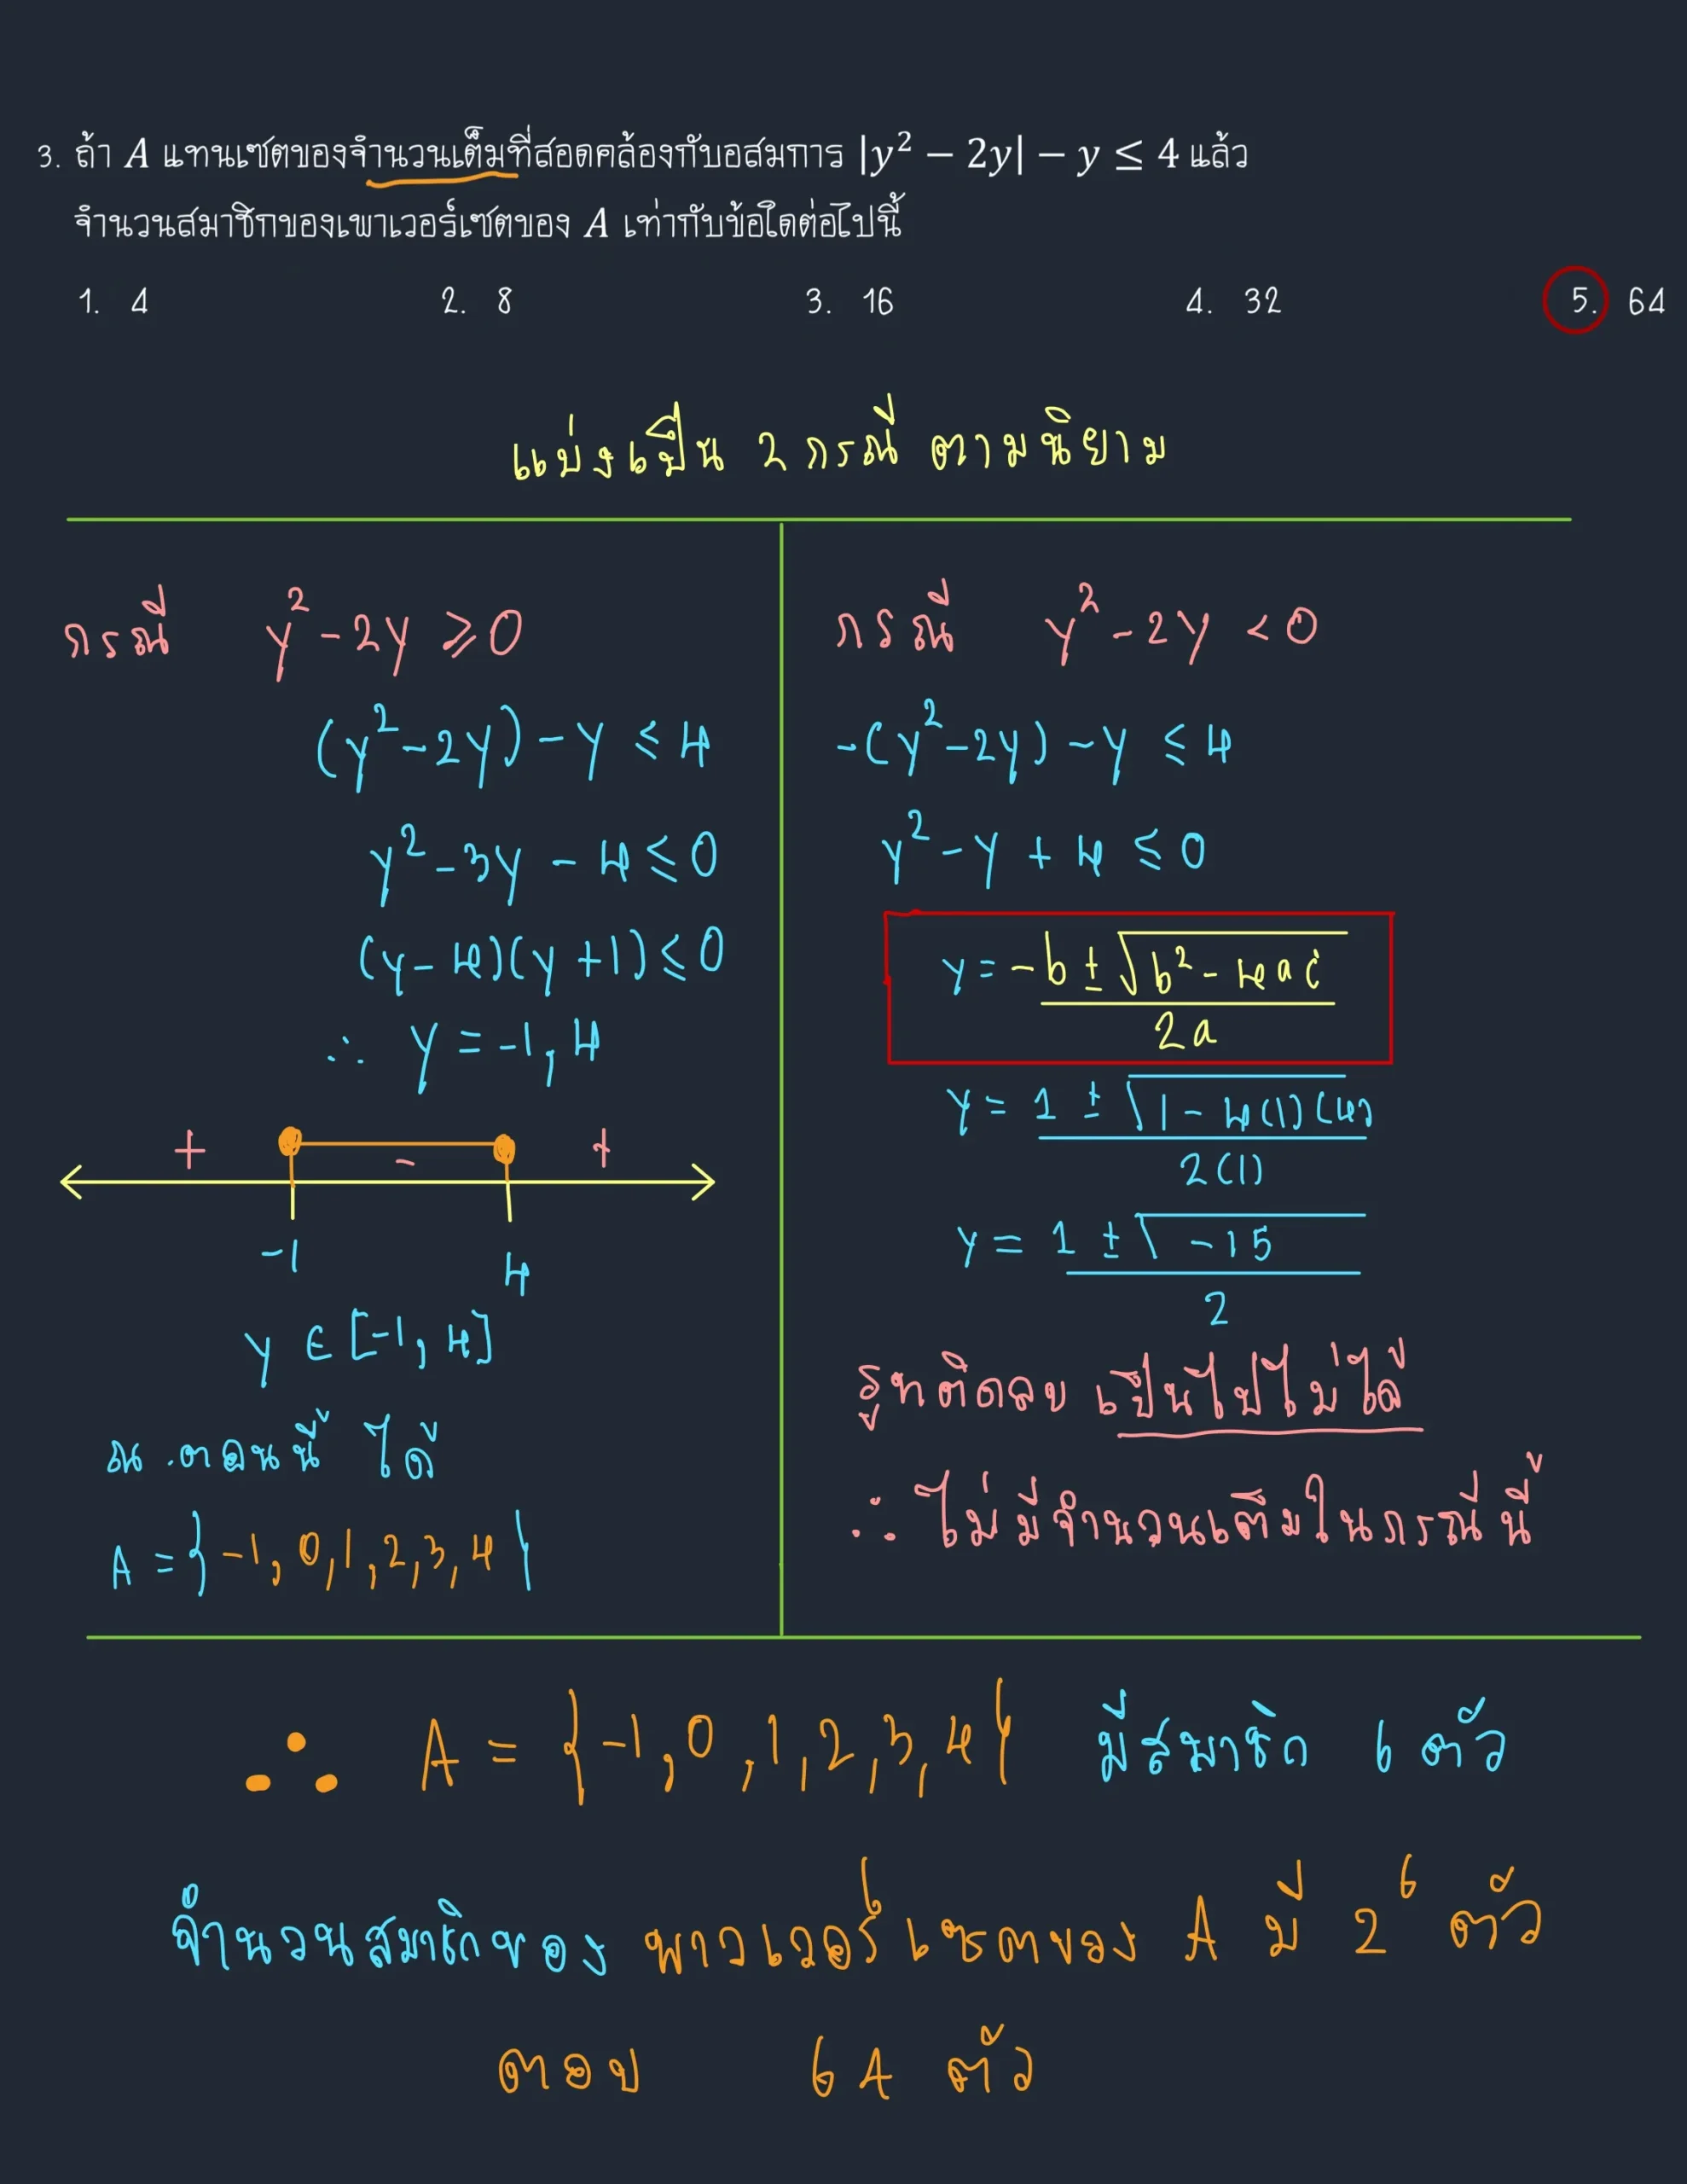 3. ถ้า A แทนเซตของจำนวนเต็มที่สอดคล้องกับอสมการ |y² − 2y| − y ≤ 4 แล้ว
จำนวนสมาชิกของเพาเวอร์เซตของ A เท่ากับข้อใดต่อไปนี้
1. 4 2. 8 3. 16 4. 32 5. 64
แบ่งเป็น 2 กรณี ตามนิยาม
กรณี y² - 2y ≥ 0
(y² - 2y) - y ≤ 4
y² - 3y - 4 ≤ 0
(y - 4)(y + 1) ≤ 0
∴ y = -1, 4
+ - +
-1 4
y ∈ [-1, 4]
ณ ตอนนี้ ได้
A = {-1, 0, 1, 2, 3, 4}
กรณี y² - 2y < 0
-(y² - 2y) - y ≤ 4
y² - y + 4 ≤ 0
y = -b ± √b² - 4ac
2a
y = 1 ± √1 - 4(1)(4)
2(1)
y = 1 ± √-15
2
รูทติดลบ เป็นไปไม่ได้
∴ ไม่มีจำนวนเต็มในกรณีนี้
∴ A = {-1, 0, 1, 2, 3, 4} มีสมาชิก 6 ตัว
จำนวนสมาชิกของ พาวเวอร์เซตของ A มี 2⁶ ตัว
ตอบ 64 ตัว